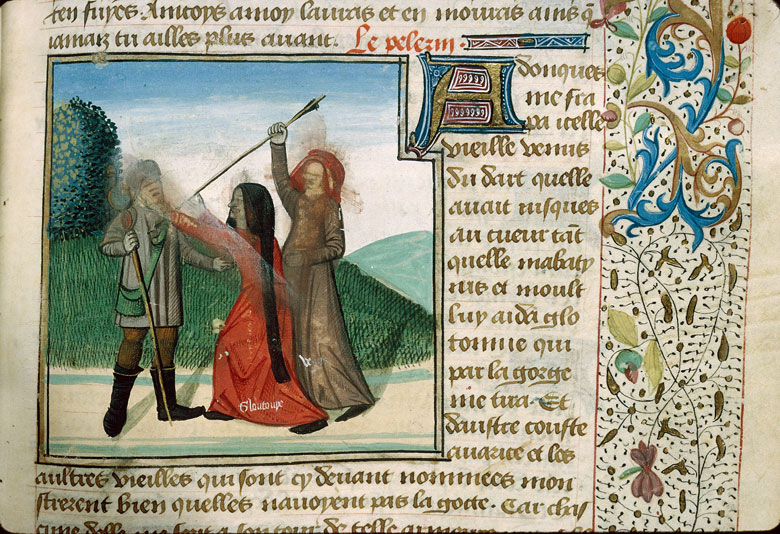 ten fuyes. Aincoys a moy lauras et en mourras ains q̄
iamaiz tu ailles plus auant. Le pelerin.
Adonques
me fra
pa icelle
vieille venus
du dart quelle
auait iusques
au cueur tāt
quelle mabaty
ius et moult
luy aida glo
tonnie qui
par la gorge
me tira. Et
dautre couste
auarice et les
Gloutoupe
aultres vieilles qui sont cy deuant nommees mon
strerent bien quelles nauoyent pas la gocte. Car chas
cune delle me fist a son tour de telle